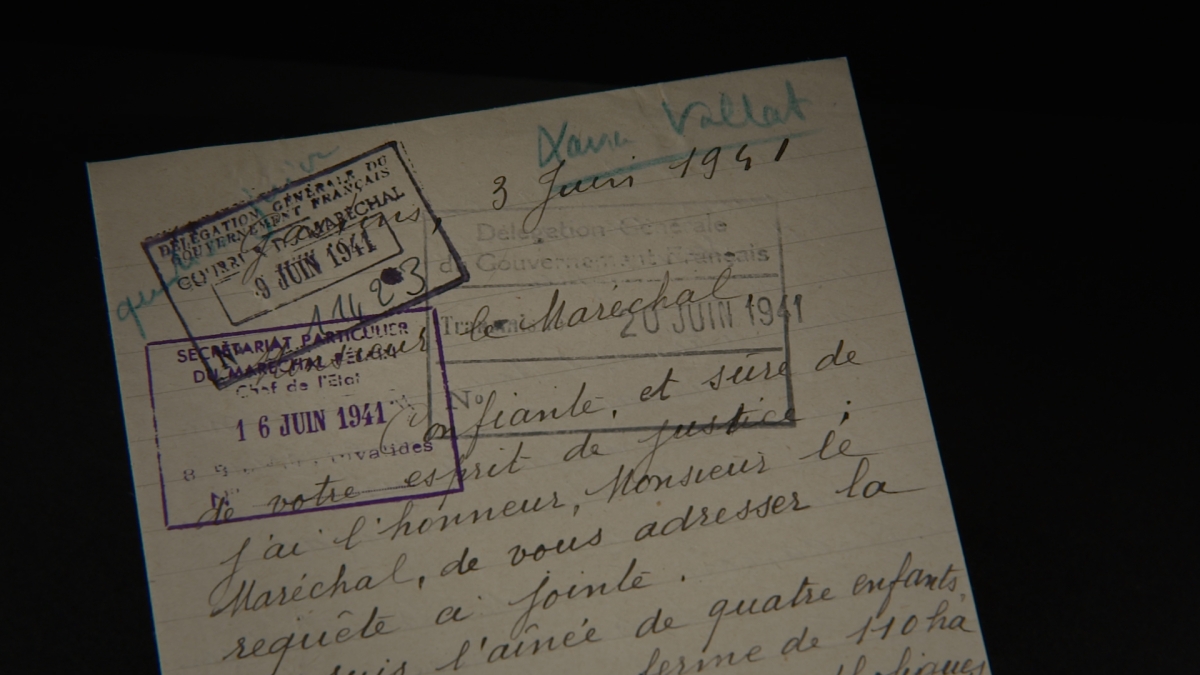 Xavier Vallat
3 Juin 1941
DÉLÉGATION GÉNÉRALE DU
GOUVERNEMENT FRANÇAIS
DU MARÉCHAL
9 JUIN 1941
N° 11423
Délégation Générale
du Gouvernement Français
20 JUIN 1941
N°
SECRÉTARIAT PARTICULIER
DU MARÉCHAL PÉTAIN
Chef de l'État
16 JUIN 1941
Invalides
Monsieur le Maréchal,
Confiante, et sûre de
de votre esprit de justice ;
j'ai l'honneur, Monsieur le
Maréchal, de vous adresser la
requête ci jointe.
suis l'aînée de quatre enfants,
ferme de 110 ha